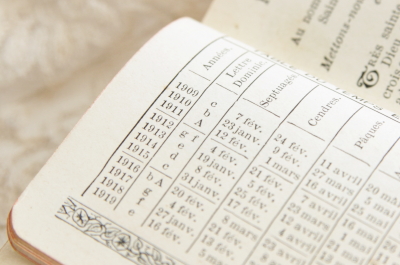 Années. Lettres Dominic. Septuagés. Cendres. Pâques.
1909 c 7 fév. 24 fév. 11 avril
1910 b 23 janv. 9 fév. 27 mars 5 mai
1911 A 12 fév. 1 mars 16 avril
1912 g f 4 fév. 21 fév. 7 avril
1913 e 19 janv. 5 fév. 23 mars 1 mai
1914 d 8 fév. 25 fév. 12 avril
1915 c 31 janv. 17 fév. 4 avril
1916 b A 20 fév. 8 mars 23
1917 g 4 fév. 21 fév.
1918 f 27 janv. 13 fév.
1919 e 16 fév. 5 mars
Au
Mettons-nous
Très
Dieu